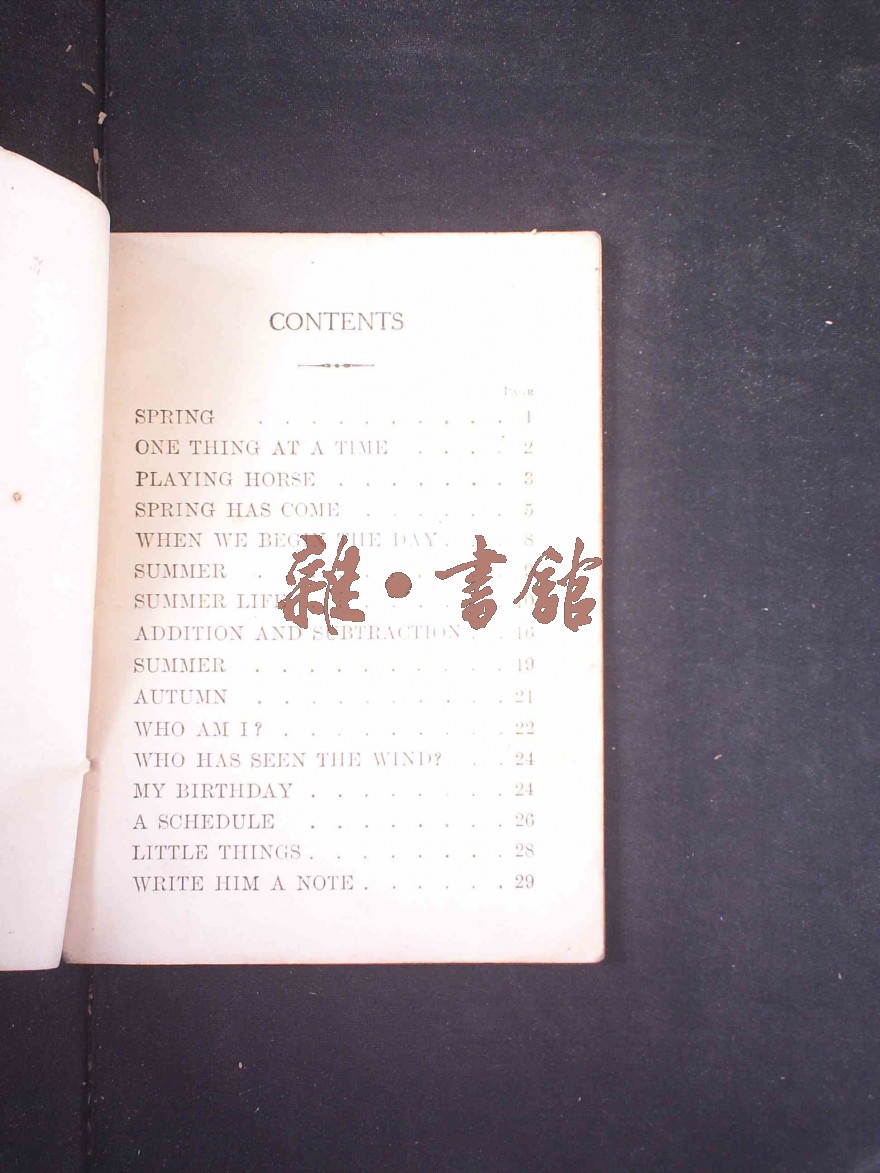 CONTENTS
PAGE
SPRING . . . . . . . . . . 1
ONE THING AT A TIME . . . . 2
PLAYING HORSE . . . . . . . 3
SPRING HAS COME . . . . . . 5
WHEN WE BEGIN THE DAY . . 8
SUMMER . . . . . . . . .
SUMMER LIFE . . . . . . .
ADDITION AND SUBTRACTION . . 16
SUMMER . . . . . . . . . 19
AUTUMN . . . . . . . . . 21
WHO AM I? . . . . . . . . 22
WHO HAS SEEN THE WIND? . . 24
MY BIRTHDAY . . . . . . . 24
A SCHEDULE . . . . . . . 26
LITTLE THINGS . . . . . . . 28
WRITE HIM A NOTE . . . . . . 29
雜·書館